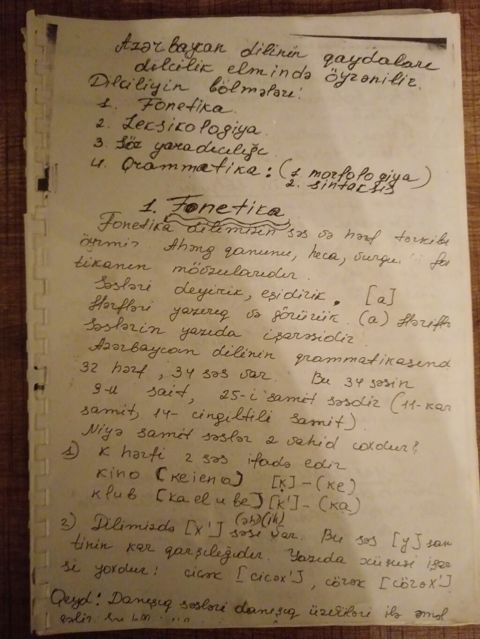 Azərbaycan dilinin qaydaları
dilçilik elmində öyrənilir.
Dilçiliyin bölmələri:
1. Fonetika.
2. Leksikologiya.
3. Söz yaradıcılığı
4. Qrammatika: (1. morfologiya)
2. sintaksis
1. Fonetika
Fonetika dilimizin səs və hərf tərkibi
öyrənir. Ahəng qanunu, heca, vurğu fo
tikanın mövzularıdır.
Səsləri deyirik, eşidirik. [a]
Hərfləri yazırıq və görürük (a) Hərflər
Səslərin yazıda işarəsidir.
Azərbaycan dilinin qrammatikasınd
32 hərf, 34 səs var. Bu 34 səsin
9-u sait, 25-i samit səsdir (11-kar
samit, 14- cingiltili samit).
Niyə samit səslər 2 vahid çoxdur?
1) K hərfi 2 səs ifadə edir
kino [keieno] [k] - (ke)
klub [ka el u be] [k'] - (ka)
2) Dilimizdə [x'] səsi var. Bu səs [y] sam
tinin kar qarşılığıdır. Yazıda xüsusi işar
si yoxdur: çiçək [çiçəx'], çörək [çörəx']
Qeyd: Danışıq səsləri danışıq üzvləri ilə əmələ
gəlir.